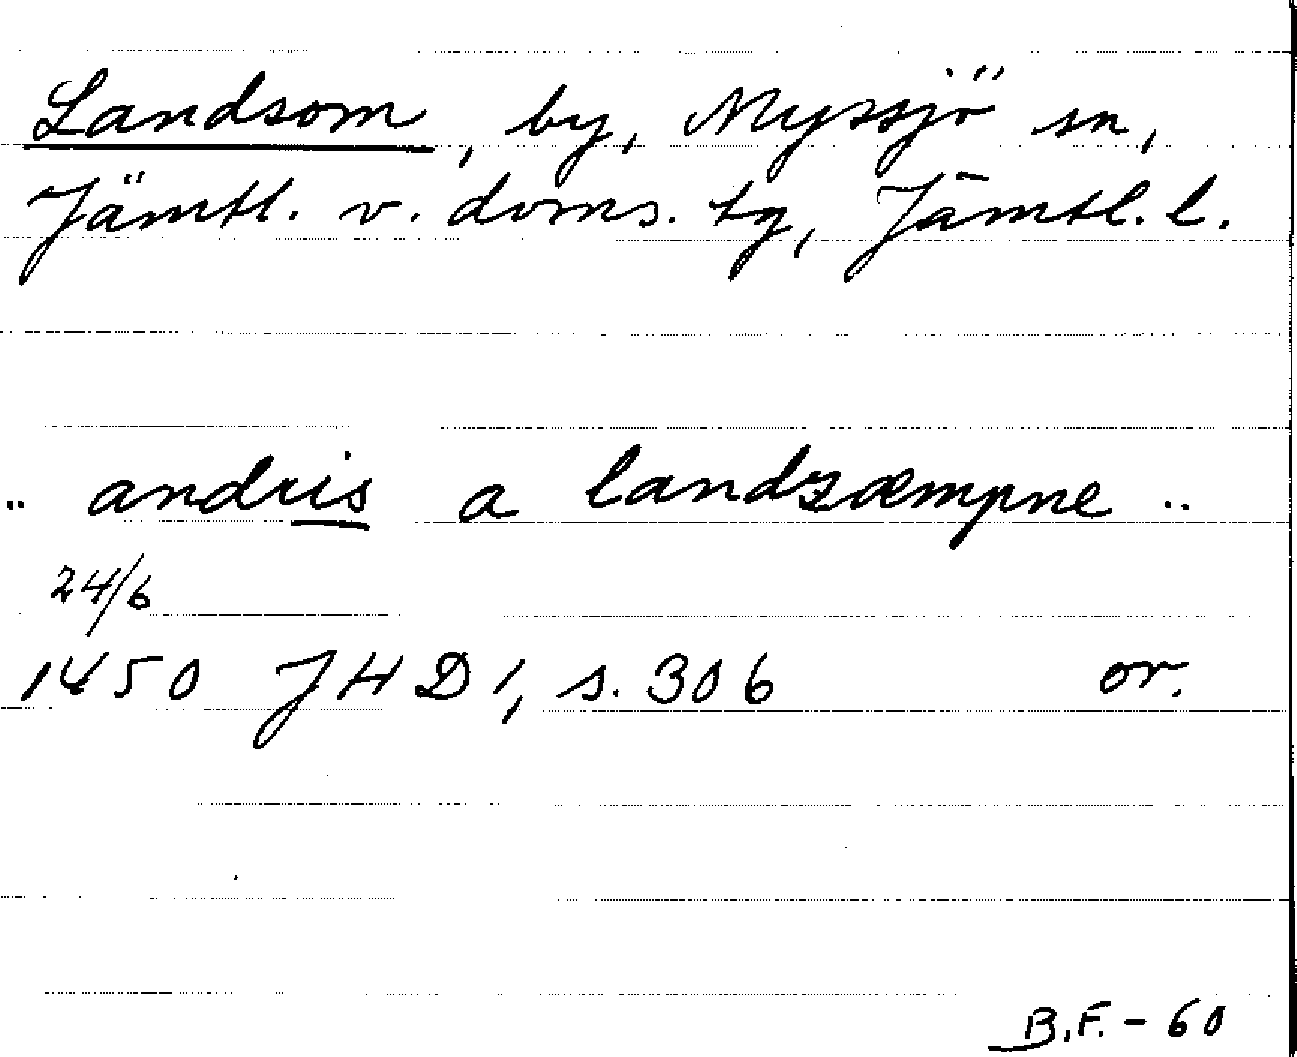 Landsom, by, Myssjö sn,
Jämtl. v. doms. tg, Jämtl. l.
.. andris a landzæmpne ..
24/6
1450 JHD 1, s. 306 or.
B.F. - 60